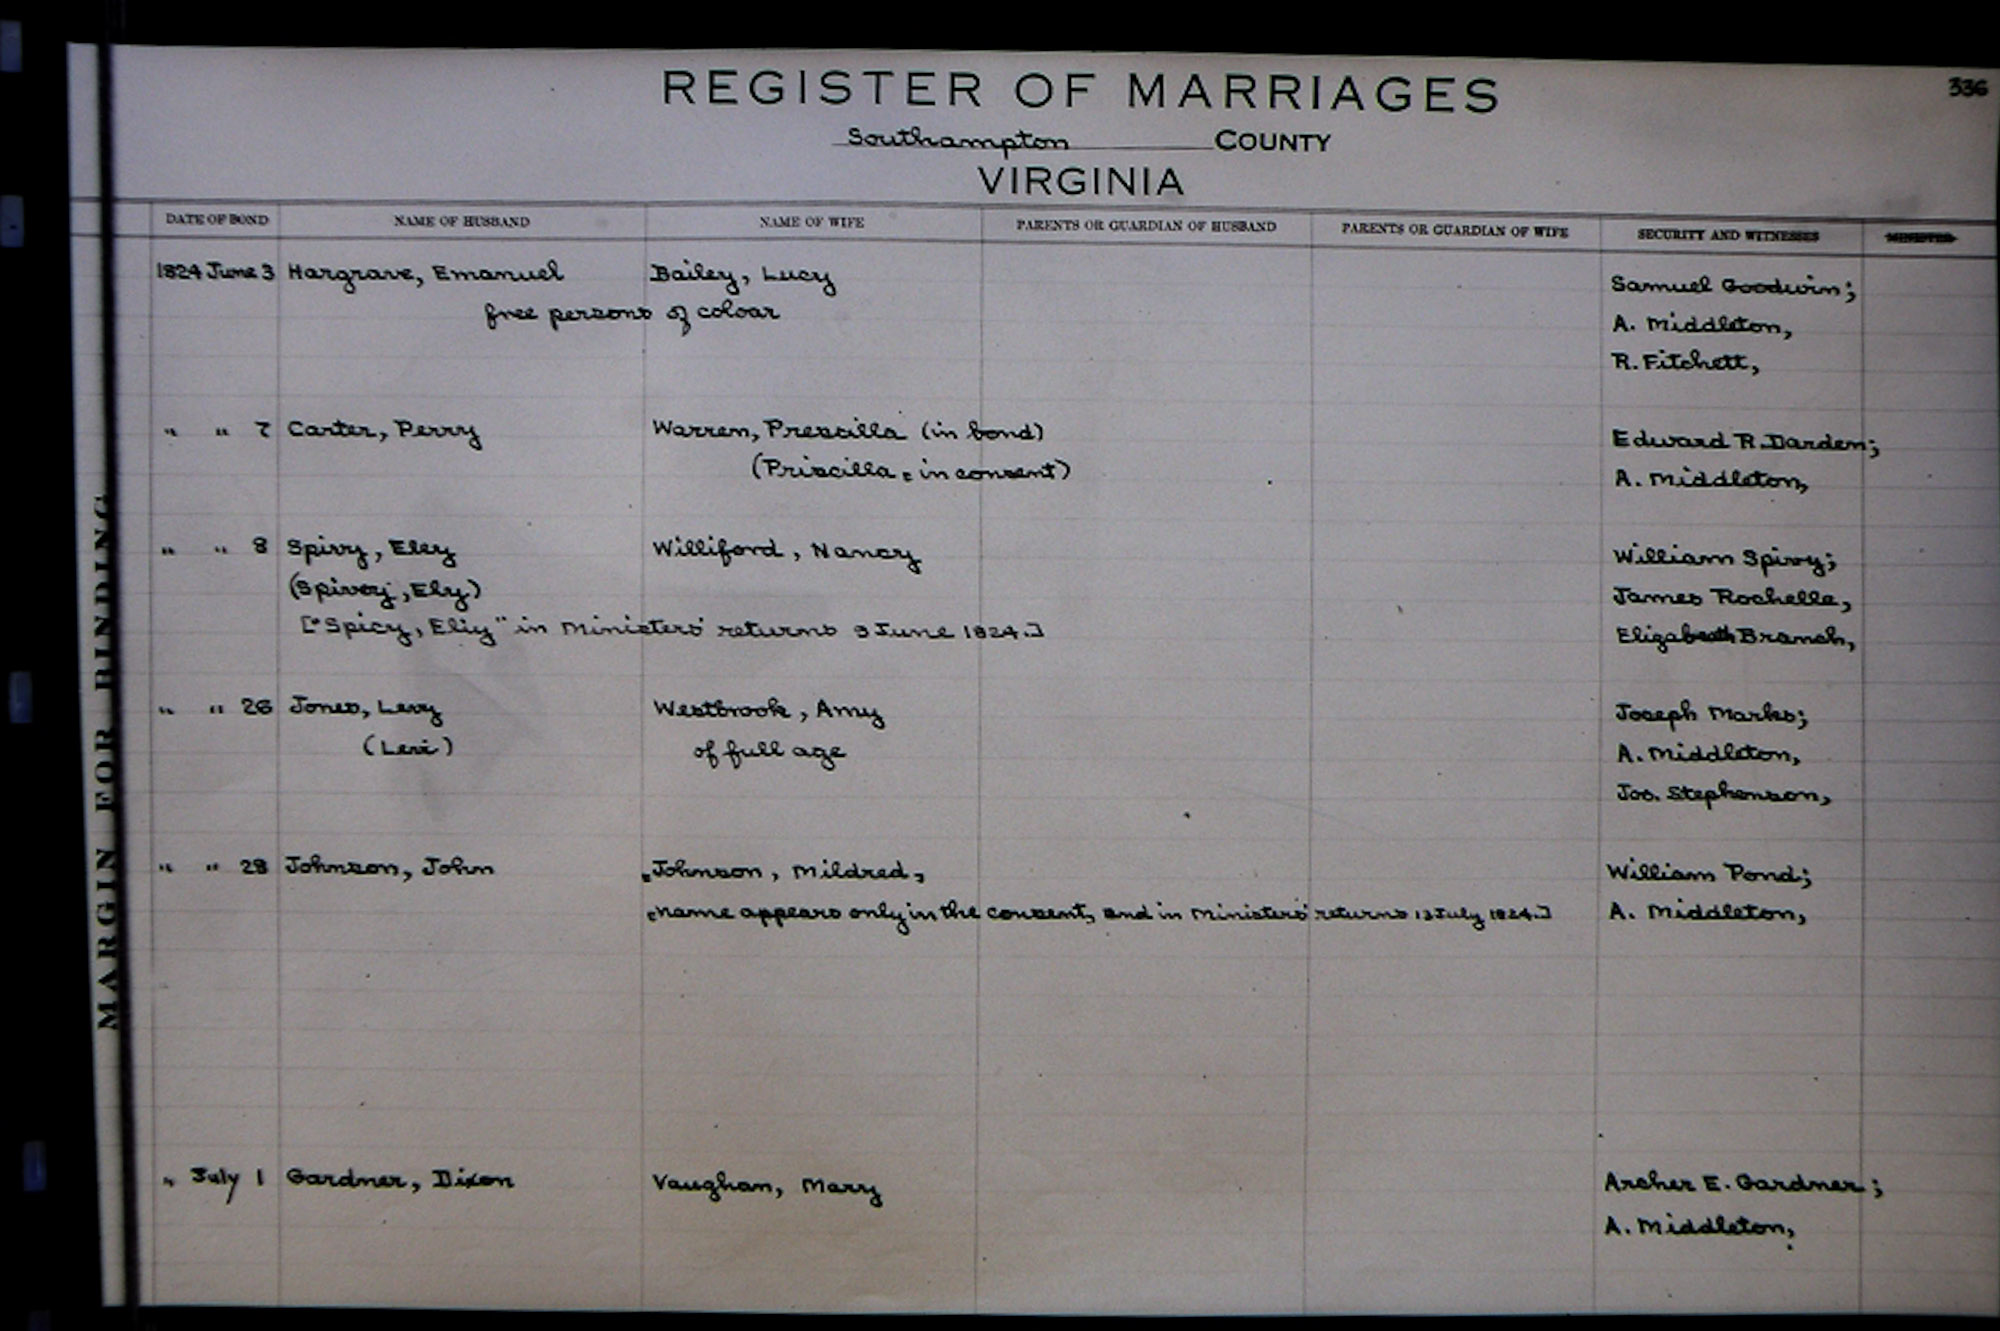 336
REGISTER OF MARRIAGES
Southampton COUNTY
VIRGINIA
DATE OF BOND NAME OF HUSBAND NAME OF WIFE PARENTS OR GUARDIAN OF HUSBAND PARENTS OR GUARDIAN OF WIFE SECURITY AND WITNESSES MINISTER
1824 June 3 Hargrave, Emanuel Bailey, Lucy Samuel Goodwin;
free persons of coloar A. Middleton,
R. Fitchett,
" " 7 Carter, Perry Warren, Prescilla (in bond) Edward R. Darden;
(Priscilla = in consent) A. Middleton,
" " 8 Spivy, Eley Williford, Nancy William Spivy;
(Spivey, Ely) James Rochelle,
["Spicy, Eliy" in Ministers' returns 9 June 1824.] Elizabeath Branch,
" " 26 Jones, Levy Westbrook, Amy Joseph Marks;
(Levi) of full age A. Middleton,
Jos. Stephenson,
" " 28 Johnson, John Johnson, Mildred, William Pond;
[name appears only in the consent, and in Ministers' returns 13 July 1824.] A. Middleton,
" July 1 Gardner, Dixon Vaughan, Mary Archer E. Gardner;
A. Middleton,
MARGIN FOR BINDING